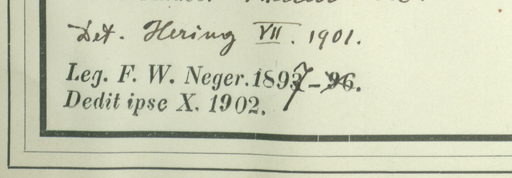 Det. Hering VII. 1901.
Leg. F. W. Neger. 1897
Dedit ipse X. 1902.